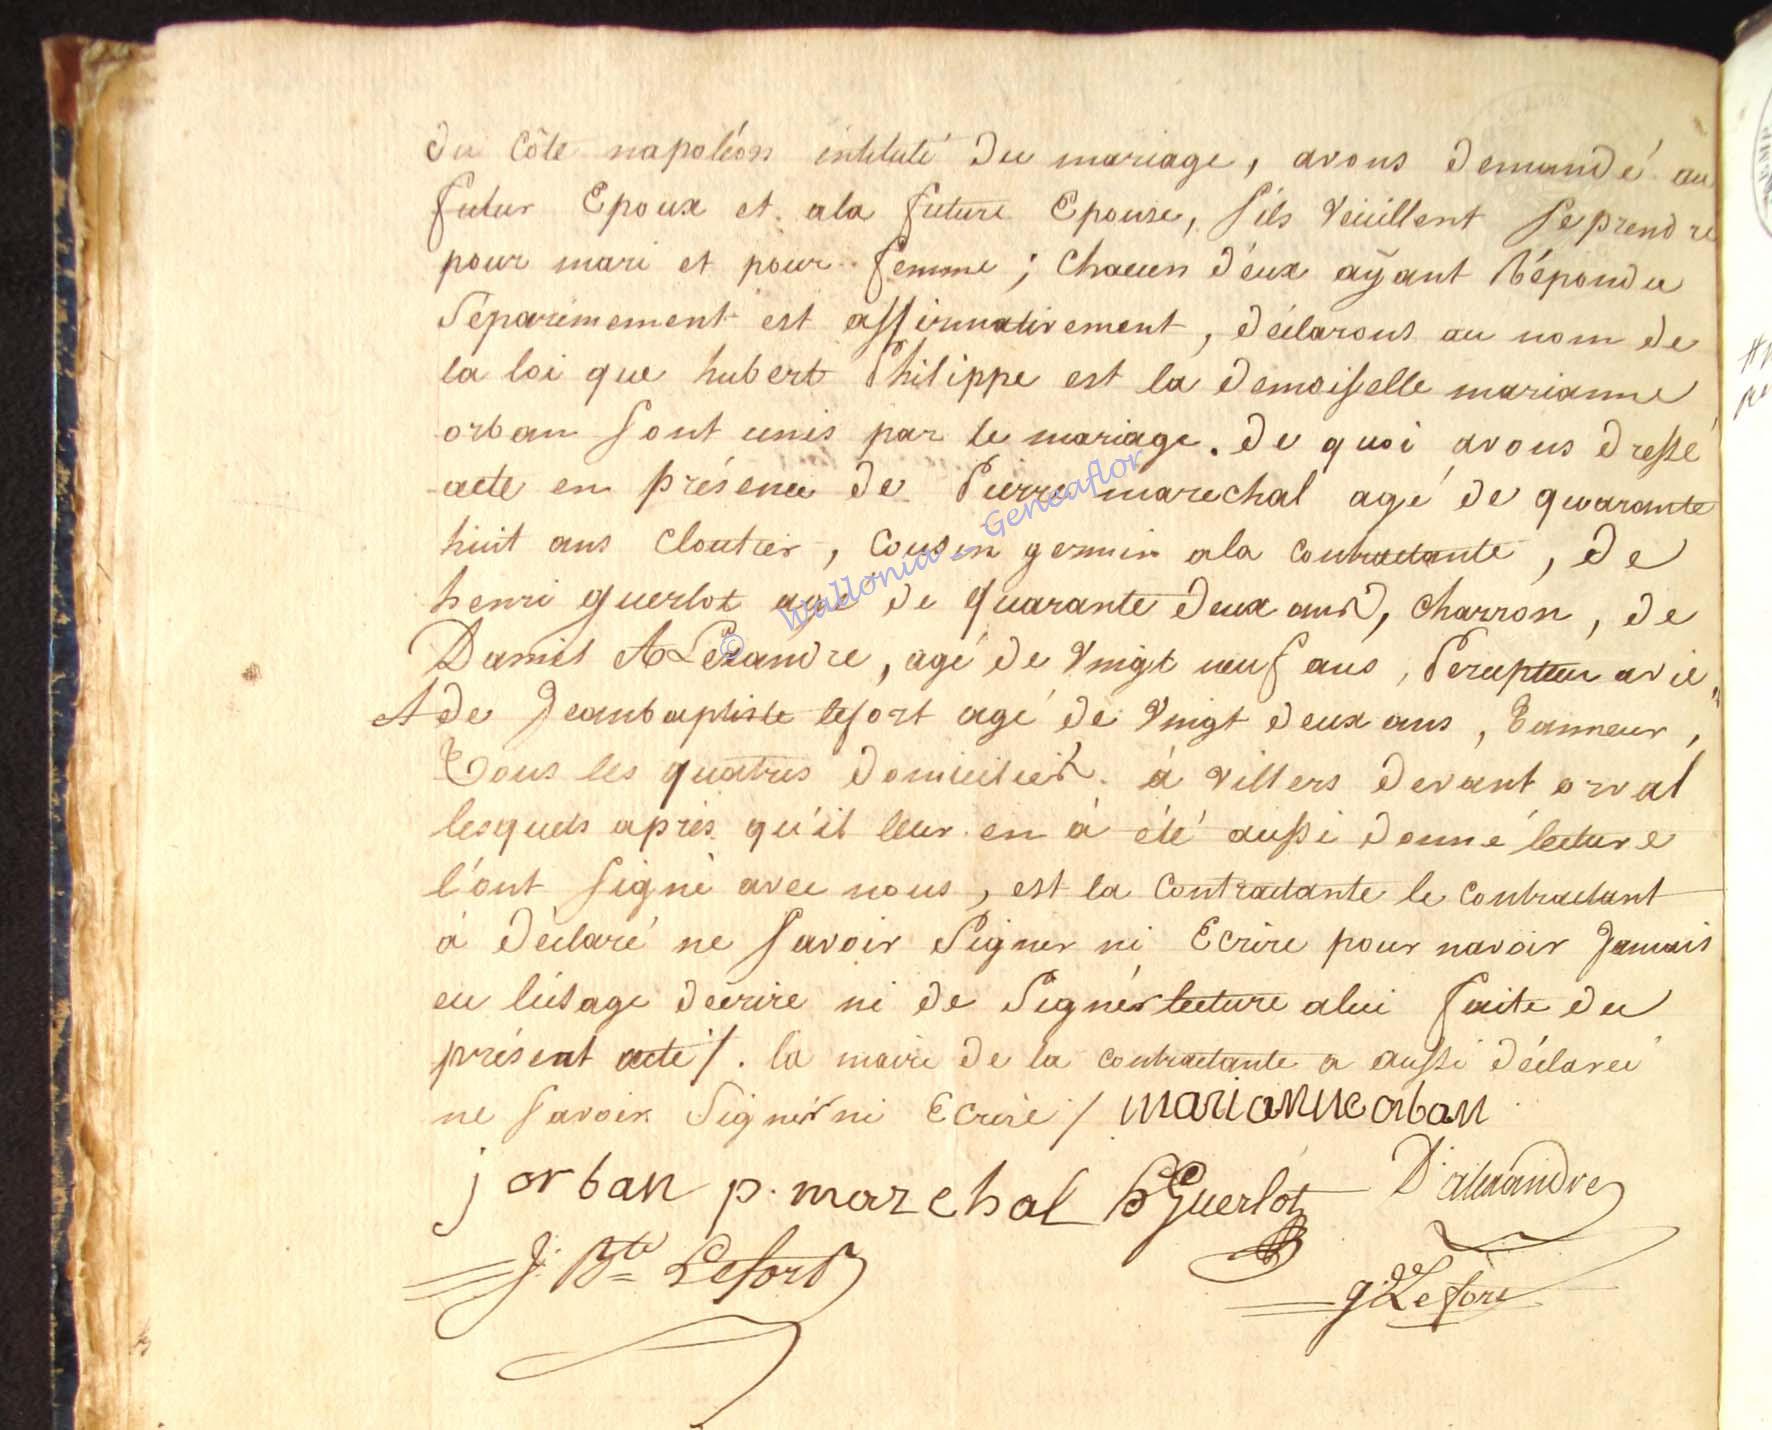 du Côte napoléon intitulé du mariage, avons demandé au
futur Epoux et ala future Epouse, s'ils veuillent se prendre
pour mari et pour femme ; chacun d'eux aÿant Répondu
Séparémement est affirmativement, déclarons au nom de
la loi que hubert Philippe est la demoiselle marianne
orban sont unis par le mariage. de quoi avons dressé
acte en présence de Pierre marechal agé de quarante
huit ans Cloutier, Cousin germin ala contractante, de
henri guerlot agé de quarante deux ans, charron, de
Daniel ALexandre, agé de vingt neuf ans, Percepteur avie
A de Jeanbaptiste lefort agé de vingt deux ans, Tanneur,
Tous les quatres domiciliés à villers devant orval
lesquels après qu'il leur en à été aussi donné lecture
l'ont signé avec nous, est la contractante le contractant
à déclaré ne savoir Signer ni Ecrire pour navoir Jamais
eu lúsage decrire ni de Signér lecture alui faite du
présent acte /. la maire de la contractante a aussi déclaréé
ne savoir Signér ni Ecrire / marianne orban
j orban p. marechal h Guerlot D. alexandre
J. Bte Lefort
g. Lefort
© Wallonia - Geneaflor